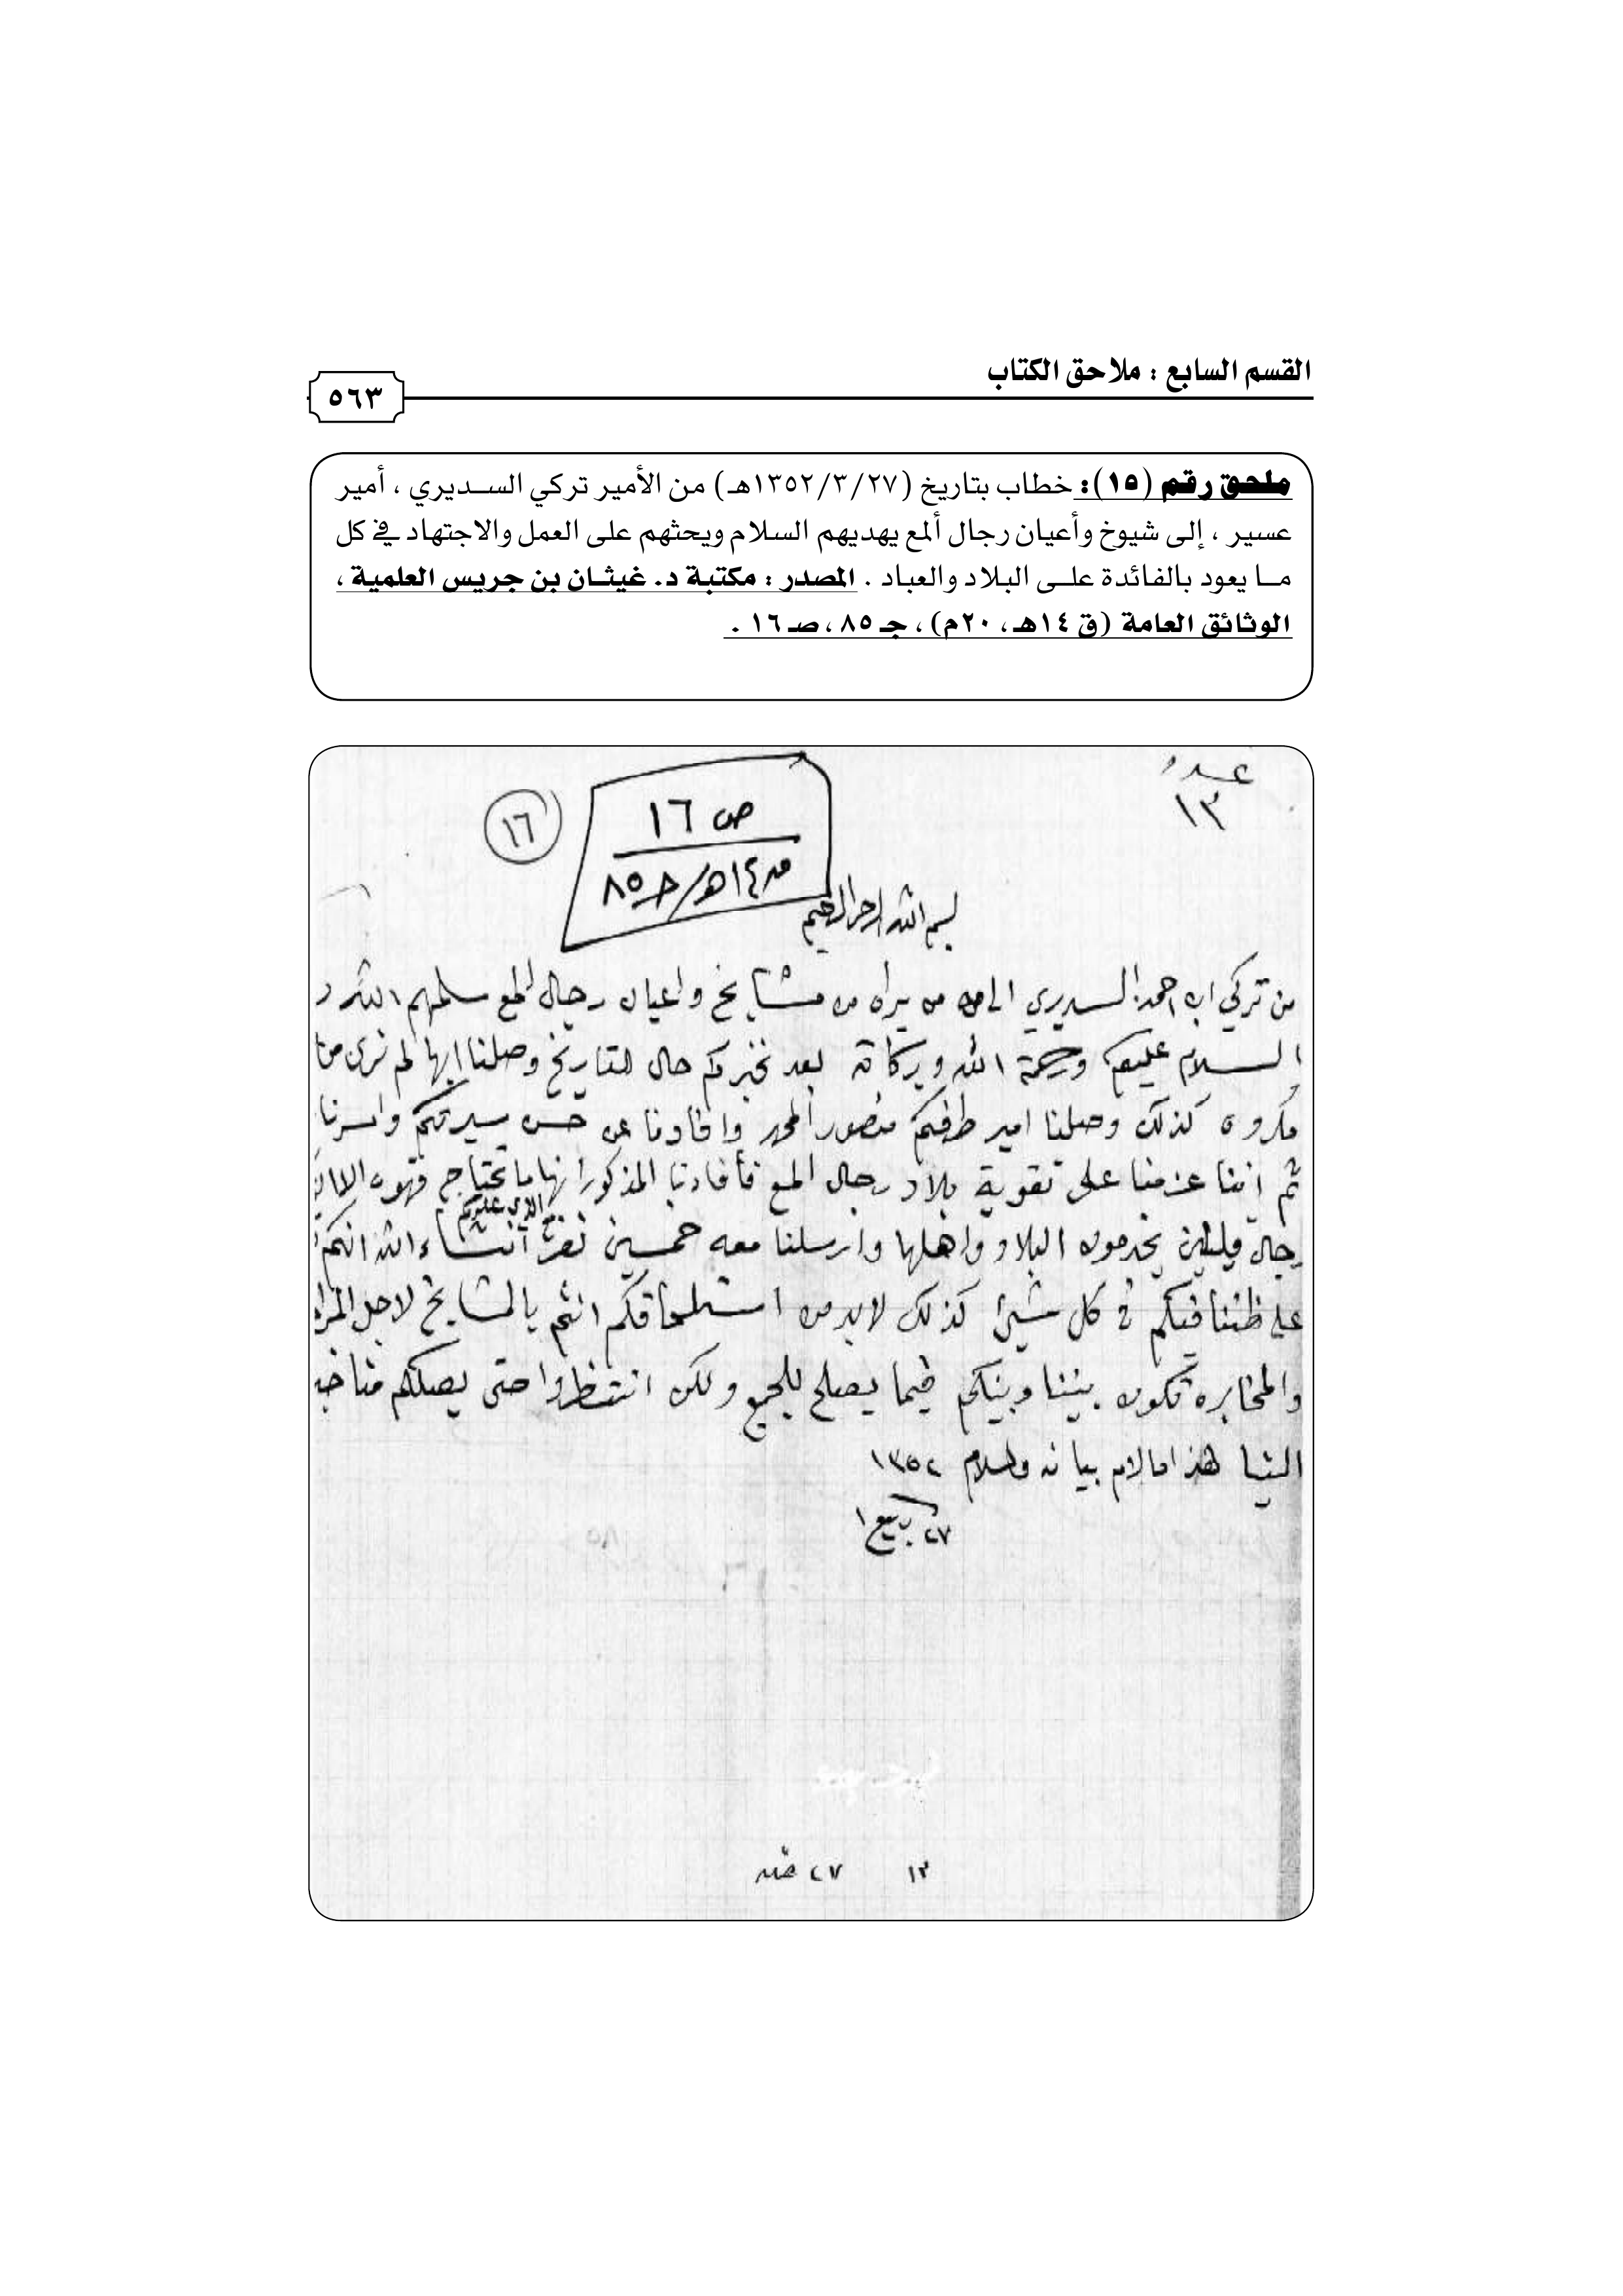 القسم السابع : ملاحق الكتاب
٥٦٣
ملحق رقم (١٥): خطاب بتاريخ (١٣٥٢/٣/٢٧هـ) من الأمير تركي السـديري ، أمير
عسير ، إلى شيوخ وأعيان رجال ألمع يهديهم السلام ويحثهم على العمل والاجتهاد في كل
مـا يعود بالفائدة علـى البلاد والعباد . المصدر : مكتبة د. غيثـان بن جريس العلمية ،
الوثائق العامة (ق ١٤هـ، ٢٠م) ، جـ ٨٥ ، صـ ١٦ .
عدد
١٣
ص ١٦
ق ١٤هـ/جـ ٨٥
١٦
بسم الله الرحمن الرحيم
من تركي ابن احمد السديري الى من يراه من مشايخ واعيان رجال المع سلمهم الله
السلام عليكم ورحمة الله وبركاته بعد نخبركم حال التاريخ وصلنا ابها لم نرى من
مكروه كذلك وصلنا امير طرفكم منصور وافادنا عن حسن سيرتكم واسرنا
ثم اننا عزمنا على تقوية بلاد رجال المع فأفادنا المذكور انها ما تحتاج
الذي عليكم
رجال قليلين يخدمون البلاد واهلها وارسلنا معه خمسين نفر انشاء الله انكم
على ظننا فيكم في كل شيئ كذلك لابد من انتم يالمشايخ لاجل
والمخابره تكون بيننا وبينكم فيما يصلح للجميع ولكن انتظروا حتى يصلكم منا
الينا هذا ما لازم بيانه والسلام ١٣٥٢
٢٧ ربيع ١
١٣ ٢٧ منه